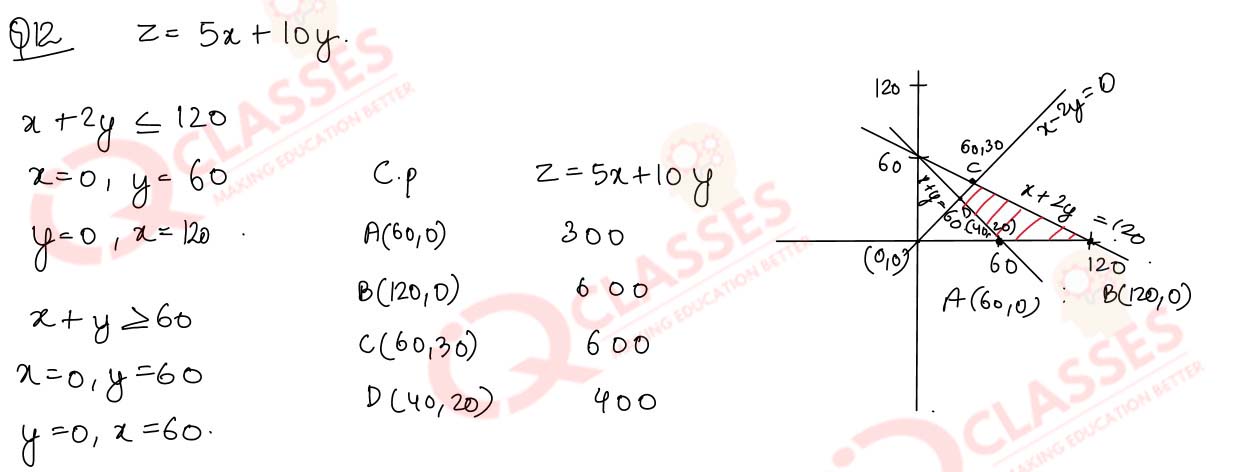 Q12 Z = 5x + 10y.
x + 2y ≤ 120
x=0, y= 60
y=0, x=120.
x + y ≥ 60
x=0, y=60
y=0, x=60.
C.p Z = 5x + 10y
A(60,0) 300
B(120,0) 600
C(60,30) 600
D(40,20) 400
120
60
x-2y=0
60,30
C
x+2y =120
x+y=60
D(40,20)
(0,0)
60
120
A(60,0)
B(120,0)
CLASSES
MAKING EDUCATION BETTER
CLASSES
MAKING EDUCATION BETTER
CLASSES
MAKING EDUCATION BETTER